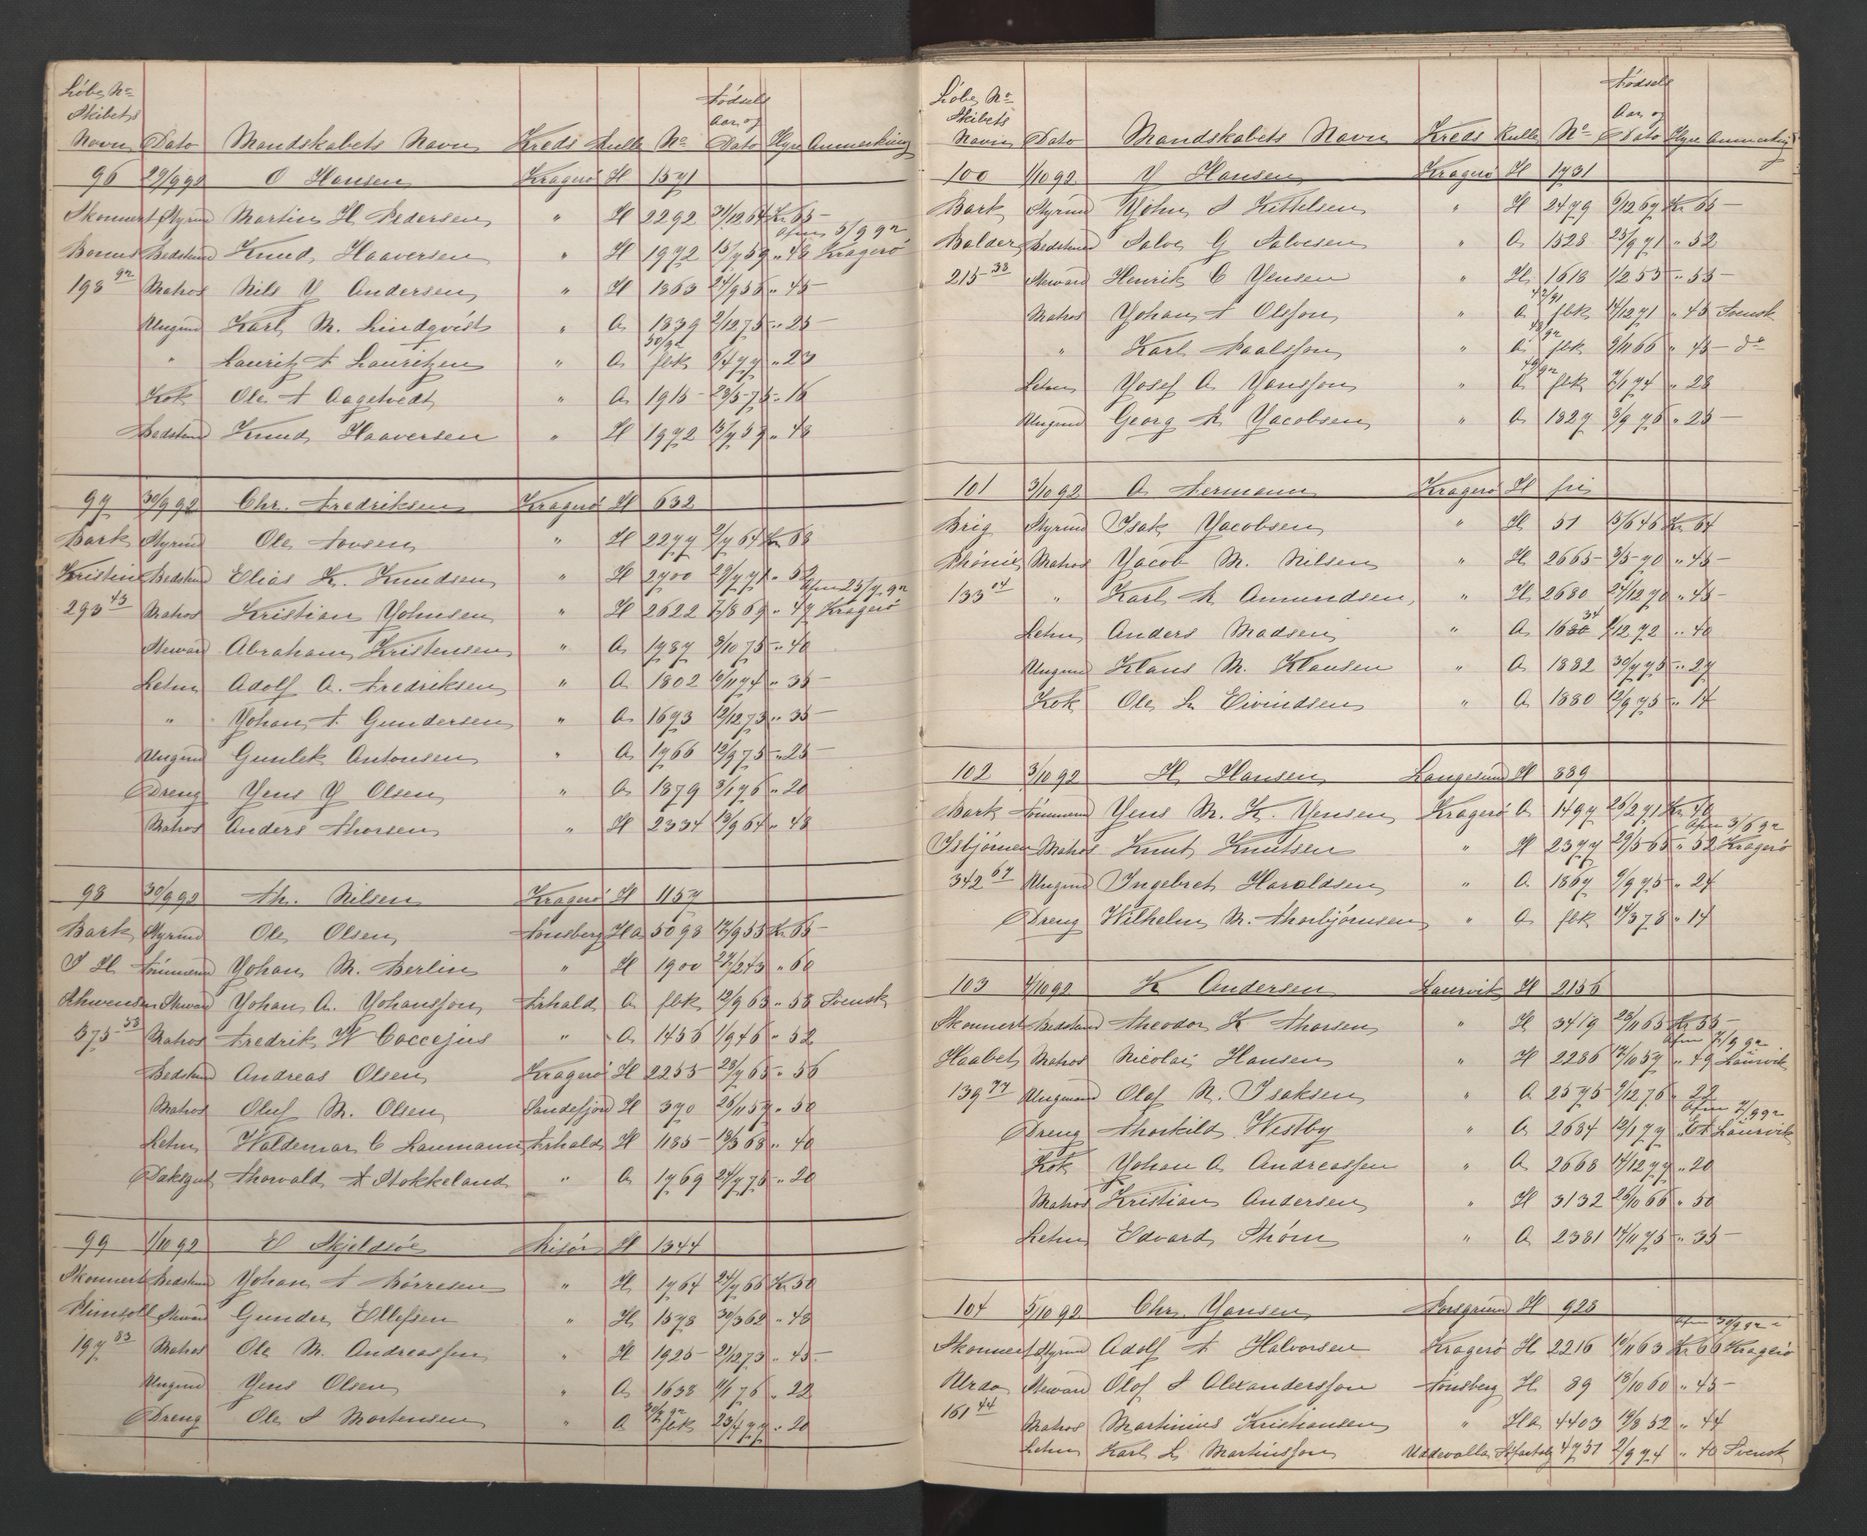 Løbe No
Skibets
Navn Dato Mandskabets Navn Kreds Rulle No Fødsels Aar og Dato Hyre Anmerkning
96 29/9 92 O Hansen Kragerø H 1571
Skonnert Styrmd Martin H Pedersen " H 2292 31/12 64 Kr 65-
Bonus Bedstmd Knud Haaversen " H 1972 13/7 59 " 48 Afm 5/9 92 Kragerø
198 92 Matros Nils J Andersen " H 1863 24/9 56 " 45-
Ungmd Karl M. Lindqvist " A 1839 2/12 75 " 25-
" Lauritz F Lauritzen " A 30/92 flk 6/4 77 " 23
Kok Ole F Aagetvedt " A 1915- 23/5 75 " 16
Bedstmd Knud Haaversen " H 1972 13/7 59 " 48
97 30/9 92 Chr. Fredriksen Kragerø H 632
Bark Styrmd Ole Tovsen " H 2277 2/7 64 Kr 68
Kristine Bedstmd Elias K. Knudsen " H 2700 29/7 71 " 52
293 43 Matros Kristian Johnsen " H 2622 7/8 69 " 47 Afm 25/7 92 Kragerø
Steward Abraham Kristensen " A 1787 3/10 75 " 40
Letm Adolf A. Fredriksen " A 1802 6/11 74 " 35-
" Johan F. Gundersen " A 1693 12/12 73 " 35-
Ungmd Gunlek Antonsen " A 1766 12/9 75 " 25-
Dreng Jens J Olsen " A 1879 3/1 76 " 20
Matros Anders Thorsen " H 2334 13/9 64 " 48
98 30/9 92 Th. Nilsen Kragerø H 1157
Bark Styrmd Ole Olsen Tønsberg Ha 5098 17/9 53 Kr 65-
J H Tømmermd Johan M. Berlin " H 1900 27/2 43 " 60
Schwensen Stward Johan A. Johansson Arhald A flk 12/9 63 " 58 Svensk
375-53 Matros Fredrik W Coccejus " A 1455 1/9 46 " 52
Bedstmd Andreas Olsen Kragerø H 2255- 23/7 65 " 56
Matros Oluf M. Olsen Sandefjord H 370 26/11 57 " 50
Letm Waldemar C Laumann Arhald H 1185- 13/3 68 " 40
Daksgut Thorvald F Stokkeland " A 1769 24/7 75 " 20
99 1/10 92 E Skjeldsøe Risør H 1344
Skonnert Bedstmd Johan F Børresen " H 1764 24/7 66 Kr 50
Plimsoll Stward Gunder Ellefsen " H 1578 30/3 62 " 48
197 83 Matros Ole M. Andreassen " H 1925- 21/12 73 " 45-
Ungmd Jens Olsen " A 1638 11/1 76 " 22
Dreng Ole S Mortensen " A 30/9 92 flk 23/4 77 " 20
Løbe No
Skibets
Navn Dato Mandskabets Navn Kreds Rulle No Fødsels Aar og Dato Hyre Anmerking
100 1/10 92 J Hansen Kragerø H 1731
Bark Styrmd John S Kittelsen " H 2479 6/12 67 Kr 65-
Balder Bedstmd Salve G Salvesen " A 1528 23/9 71 " 52
215-33 Steward Henrik C Jensen " H 1618 1/2 53 " 55-
Matros Johan F Olsson " A 42/91 flk 17/12 71 " 45 Svensk
" Karl Paalsson " A 48/92 flk 9/11 66 " 45- do
Letm Josef A Jonsson " A 49/92 flk 7/1 74 " 28
Ungmd Georg A Jacobsen " A 1827 3/9 76 " 25-
101 3/10 92 A Fermann Kragerø H fri
Brig Styrmd Isak Jacobsen " H 51 13/6 46 Kr 64
Phønix Matros Jacob M. Nilsen " H 2665- 3/5 70 " 45-
133 04 " Karl A Amundsen " H 2680 27/12 70 " 45-
Letm Anders Madsen " A 1630 34 6/12 72 " 40
Ungmd Klaus M. Klausen " A 1882 30/7 75 " 27
Kok Ole L. Eivindsen " A 1880 12/9 75 " 14
102 3/10 92 H Hansen Langesund H 889
Bark Tømmermd Jens M. K. Jensen Kragerø A 1497 26/2 71 Kr 40
Isbjørnen Matros Knut Knutsen " H 2377 29/5 65 " 52 Afm 3/6 92 Kragerø
342 67 Ungmd Ingebret Haroldsen " A 1867 9/9 75 " 24
Dreng Wilhelm M. Thorbjørnsen " A flk 14/3 78 " 14
103 4/10 92 K Andersen Laurvik H 2156
Skonnert Bedstmd Theodor K Thorsen " H 3419 23/11 65 Kr 55-
Haabet Matros Nicolai Hansen " H 2286 17/10 57 " 49 Afm 7/9 92 Laurvik
139 77 Ungmand Olaf N. Isaksen " A 2575 9/12 76 " 22
Dreng Thorkild Westby " A 2684 12/1 77 " Afm 7/9 92 Laurvik
Kok Johan A Andreassen " A 2668 14/12 77 " 20
Matros Kristian Andersen " H 3132 25/10 66 " 50
Letm Edvard Strøm " A 2381 14/11 75 " 35-
104 5/10 92 Chr. Jansen Porsgrund H 923
Skonnert Styrmd Adolf F Halvorsen Kragerø H 2216 10/11 63 Kr 66 Afm 30/9 92 Kragerø
Urda Steward Olof S Alexandersson Tønsberg H 89 13/10 60 " 45-
161 44 Matros Martinius Kristiansen " Ha 4403 19/8 52 " 44
Letm Karl L Martinsson Uddevalla 4731 2/9 74 " 40 Svensk